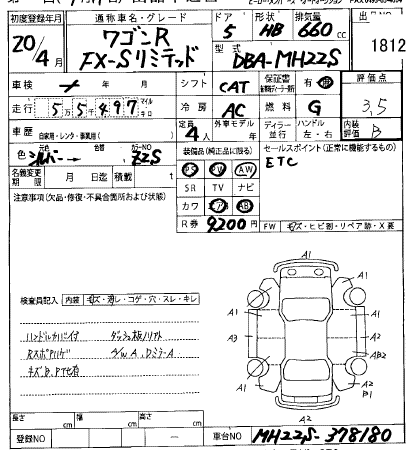 初度登録年月 通称車名・グレード ドア 形状 排気量 出
20/4 ワゴンR FX-Sリミテッド 5 HB 660cc 1812
型式 DBA-MH22S
車検 シフト CAT 保証書 有 評価点
走行 55497 マイル キロ 冷房 AC 燃料 G 3,5
車歴 自家用・レンタ・事業用( ) 定員 4人 外車モデル ディーラー 並行 ハンドル 左・右 内装評価 B
色 元色 シルバー → 色替 カラーNO Z2S 装備品(純正品に限る) セールスポイント(正常に機能するもの)
名義変更期限 月 日迄 積載 t PS PW AW ETC
注意事項(欠品・修復・不具合箇所および状態) SR TV ナビ
カワ エアB AB
R券 9200円 FW キズ・ヒビ割・リペア跡・X要
A1
検査員記入 内装 キズ・汚レ・コゲ・穴・スレ・キレ A1 A1
ハンドルカバイヤ ダッシュ板ノリアト A3 A2
RスポPリハゲ ゲルA、DミラーA A1 AB2
キズB、P下モ有 A2 A2
B1
長さ cm 幅 cm 高さ cm A2
登録NO ー 車台NO MH22S-378180